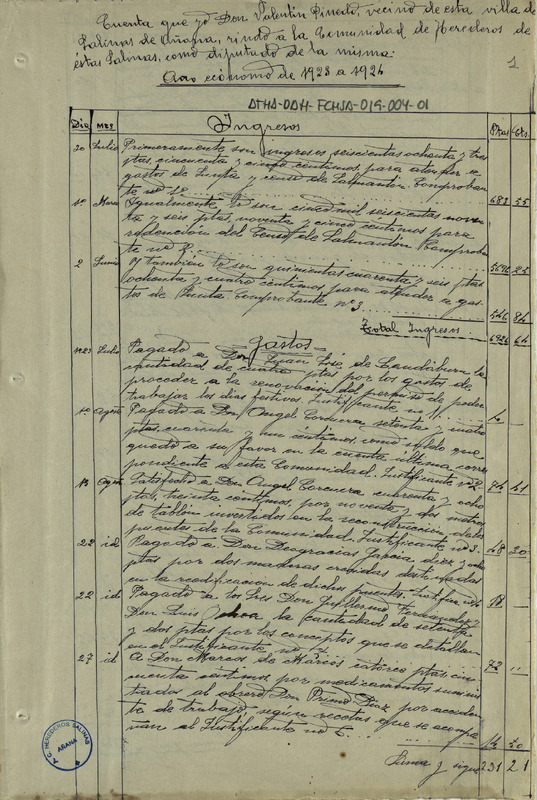 Cuenta que yo Don Valentín Pinedo, vecino de esta villa de
Salinas de Añana, rindo a la Comunidad de Herederos de
éstas Salinas, como diputado de la misma:
Año económo de 1923 a 1924
1
ATHA-DAH-FCHSA-019-004-01
Dia MES Ingresos Ptas Cts.
20 Julio Primeramente son ingresos seiscientas ochenta y tres
ptas, cincuenta y cinco céntimos, para atender a
gastos de Junta y censo de Labastida. Comproban
te nº 1 683 55
1º Marzo Igualmente lo son cinco mil seiscientas noven
ta y seis ptas, noventa y cinco céntimos para
redención del Censo de Comproba
te nº 2 5696
2 Junio Y también lo son quinientas cuarenta y seis ptas
ochenta y cuatro céntimos, para atender a gas-
tos de Junta. Comprobante nº 3 546 84
Total Ingresos 6926 64
Gastos
Julio Pagado a Don Juan José de Landáburu la
cantidad de cuatro ptas por los gastos de
proceder a la renovación del permiso de poder
trabajar los dias festivos. Justificante nº 1 4
1º Agosto Pagado a Don Angel Corcuera setenta y cuatro
ptas, cuarenta y un céntimos, como saldo que
quedó a su favor en la cuenta última corres
pondiente a esta Comunidad. Justificante nº 2 74 41
18 Agosto Satisfecho a Don Angel Corcuera cuarenta y ocho
ptas, treinta céntimos, por noventa y dos metros
de tablón invertidos en la reconstrucción de los
puentes de la Comunidad. Justificante nº 3 48 30
22 id Pagado a Don Deogracias Garcia, diez y ocho
ptas por dos maderas crecidas destinadas
en la reedificacion de dichos puentes. 18
22 id Pagado a los Sres Don Guillermo Fernández y
Don Luis Ochoa la cantidad de setenta
y dos ptas por los conceptos que se detallan
en el Justificante nº 72 "
27 id A Don Marcos de Marcos catorce ptas cin
cuenta céntimos por medicamentos sumini
strados al obrero Don Primo Diaz por acciden
te de trabajo, según recetas que se acompa
ñan al Justificante nº 14 50
Suma y sigue 231 21
A.C. HEREDEROS SALINAS
AÑANA